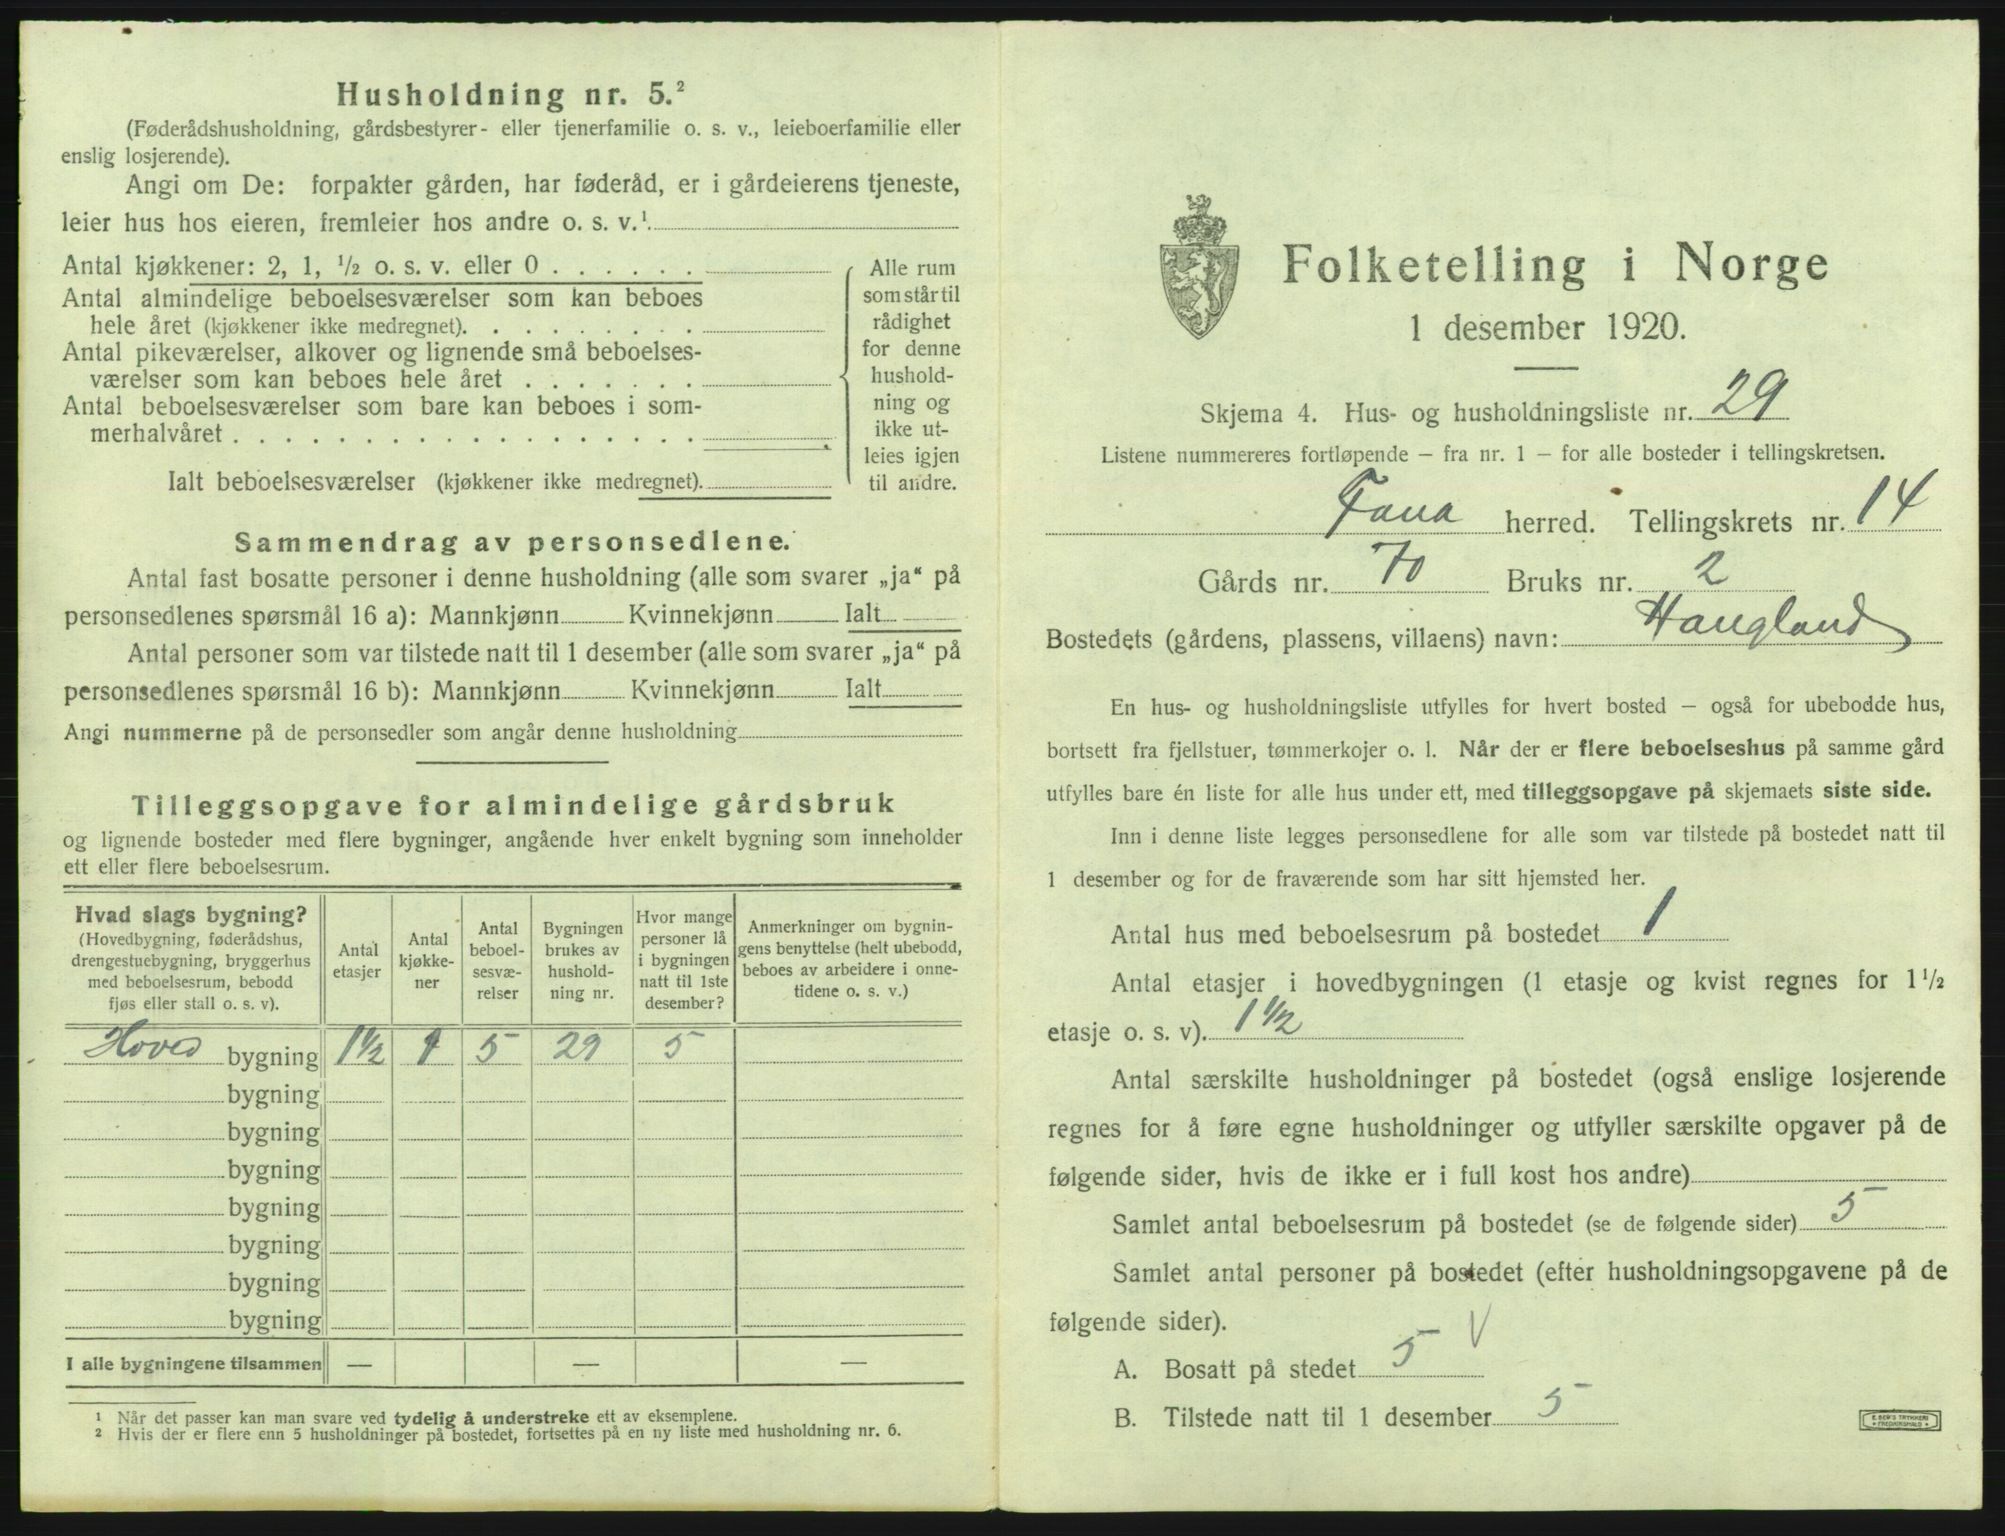 Husholdning nr. 5.²
(Føderådshusholdning, gårdsbestyrer- eller tjenerfamilie o. s. v., leieboerfamilie eller
enslig losjerende).
Angi om De: forpakter gården, har føderåd, er i gårdeierens tjeneste,
leier hus hos eieren, fremleier hos andre o. s. v.¹
Antal kjøkkener: 2, 1, ½ o. s. v. eller 0
Antal almindelige beboelsesværelser som kan beboes
hele året (kjøkkener ikke medregnet).
Antal pikeværelser, alkover og lignende små beboelses-
værelser som kan beboes hele året
Antal beboelsesværelser som bare kan beboes i som-
merhalvåret
Ialt beboelsesværelser (kjøkkener ikke medregnet).
Alle rum
som står til
rådighet
for denne
hushold-
ning og
ikke ut-
leies igjen
til andre.
Sammendrag av personsedlene.
Antal fast bosatte personer i denne husholdning (alle som svarer „ja“ på
personsedlenes spørsmål 16 a): Mannkjønn Kvinnekjønn Ialt
Antal personer som var tilstede natt til 1 desember (alle som svarer „ja“ på
personsedlenes spørsmål 16 b): Mannkjønn Kvinnekjønn Ialt
Angi nummerne på de personsedler som angår denne husholdning
Tilleggsopgave for almindelige gårdsbruk
og lignende bosteder med flere bygninger, angående hver enkelt bygning som inneholder
ett eller flere beboelsesrum.
Hvad slags bygning?
(Hovedbygning, føderådshus,
drengestuebygning, bryggerhus
med beboelsesrum, bebodd
fjøs eller stall o. s. v).
Antal
etasjer
Antal
kjøkke-
ner
Antal
beboel-
sesvæ-
relser
Bygningen
brukes av
hushold-
ning nr.
Hvor mange
personer lå
i bygningen
natt til 1ste
desember?
Anmerkninger om bygnin-
gens benyttelse (helt ubebodd,
beboes av arbeidere i onne-
tidene o. s. v.)
Hoved bygning 1½ 1 5 29 5
bygning
bygning
bygning
bygning
bygning
bygning
bygning
I alle bygningene tilsammen — — —
¹ Når det passer kan man svare ved tydelig å understreke ett av eksemplene.
² Hvis der er flere enn 5 husholdninger på bostedet, fortsettes på en ny liste med husholdning nr. 6.
Folketelling i Norge
1 desember 1920.
Skjema 4. Hus- og husholdningsliste nr. 29
Listene nummereres fortløpende — fra nr. 1 — for alle bosteder i tellingskretsen.
Fana herred. Tellingskrets nr. 14
Gårds nr. 70 Bruks nr. 2
Bostedets (gårdens, plassens, villaens) navn: Haugland
En hus- og husholdningsliste utfylles for hvert bosted — også for ubebodde hus,
bortsett fra fjellstuer, tømmerkojer o. l. Når der er flere beboelseshus på samme gård
utfylles bare én liste for alle hus under ett, med tilleggsopgave på skjemaets siste side.
Inn i denne liste legges personsedlene for alle som var tilstede på bostedet natt til
1 desember og for de fraværende som har sitt hjemsted her.
Antal hus med beboelsesrum på bostedet 1
Antal etasjer i hovedbygningen (1 etasje og kvist regnes for 1½
etasje o. s. v). 1½
Antal særskilte husholdninger på bostedet (også enslige losjerende
regnes for å føre egne husholdninger og utfyller særskilte opgaver på de
følgende sider, hvis de ikke er i full kost hos andre)
Samlet antal beboelsesrum på bostedet (se de følgende sider) 5
Samlet antal personer på bostedet (efter husholdningsopgavene på de
følgende sider).
A. Bosatt på stedet 5 V
B. Tilstede natt til 1 desember 5
E. SEM'S TRYKKERI
FREDRIKSHALD